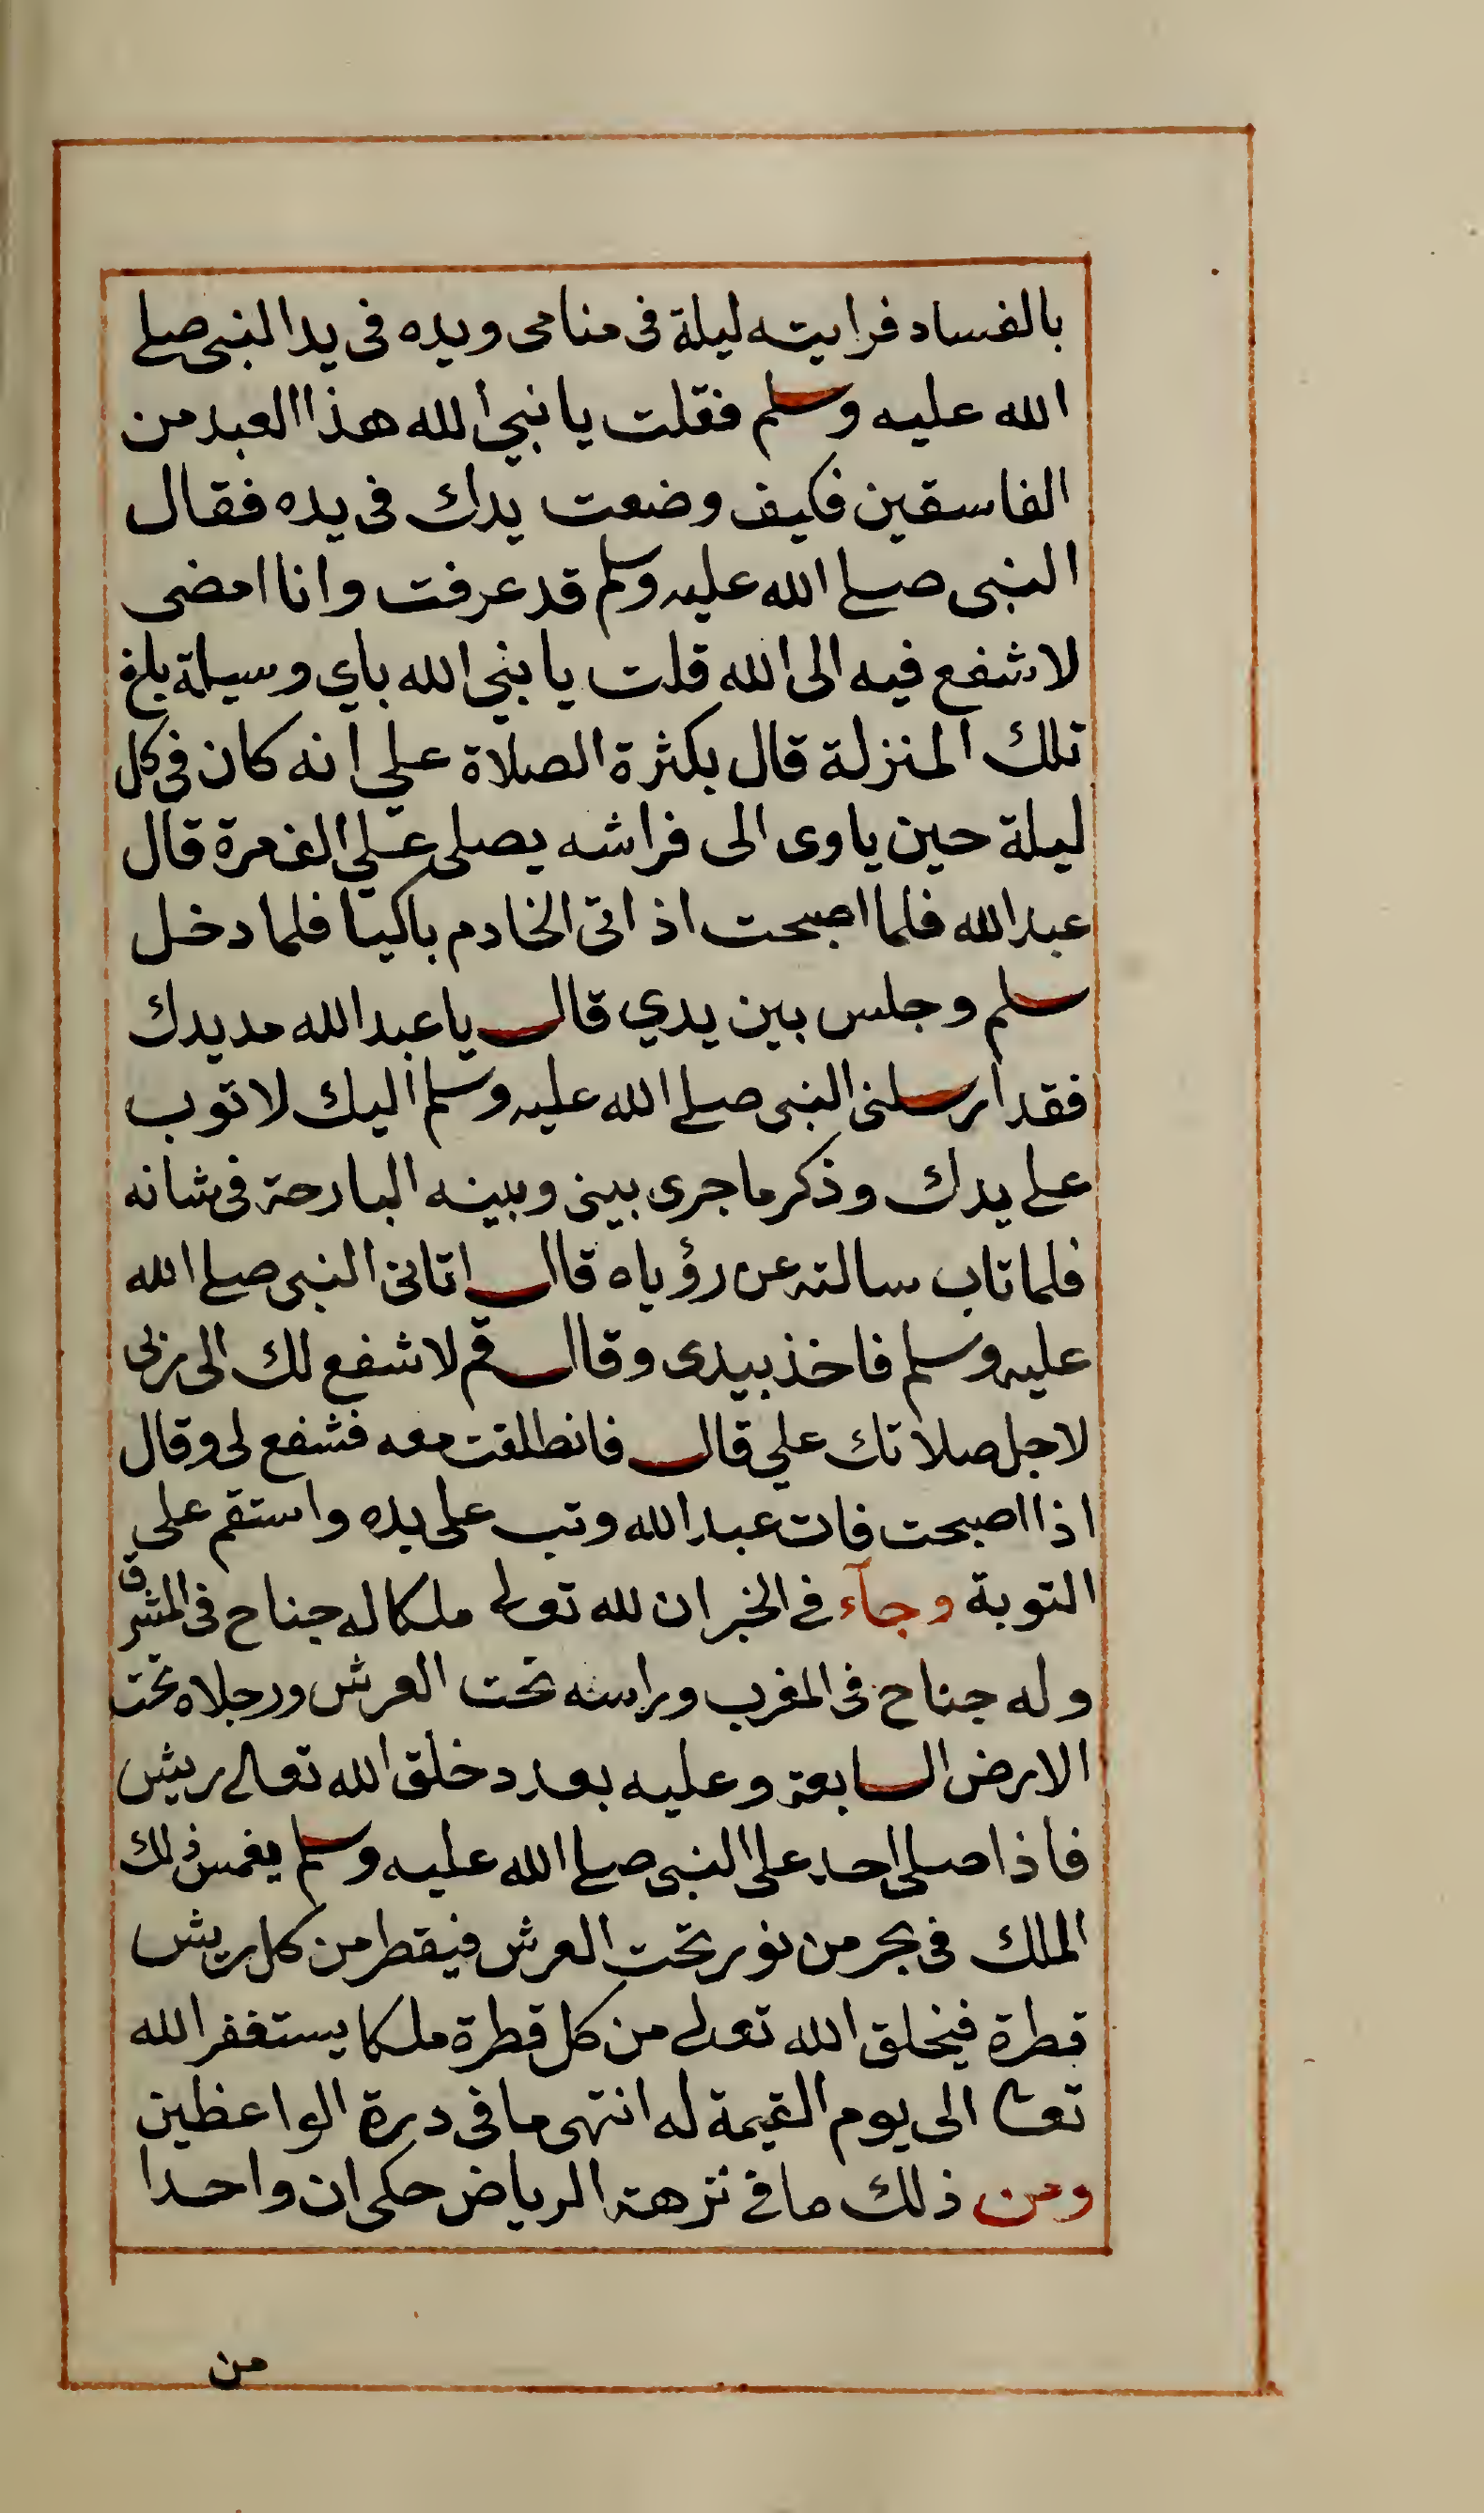 بالفساد فرايته ليلة فى منامى ويده فى يد النبى صلے
الله عليه وسلم فقلت يا نبي الله هذا العبد من
الفاسقين فكيف وضعت يدك فى يده فقال
النبى صلے الله عليه وسلم قد عرفت وانا امضى
لاشفع فيه الى الله قلت يا نبي الله باي وسيلة بلغ
تلك المنزلة قال بكثرة الصلاة علي انه كان فى كل
ليلة حين ياوى الى فراشه يصلى علي الف مرة قال
عبد الله فلما اصبحت اذ اتى الخادم باكيا فلما دخل
سلم وجلس بين يدي قال يا عبد الله مد يدك
فقد ارسلنى النبى صلے الله عليه وسلم اليك لاتوب
على يدك وذكر ما جرى بينى وبينه البارحة فى شانه
فلما تاب سالته عن رؤياه قال اتانى النبى صلے الله
عليه وسلم فاخذ بيدى وقال قم لاشفع لك الى ربى
لاجل صلاتك علي قال فانطلقت معه فشفع لى وقال
اذا اصبحت فات عبد الله وتب على يده واستقم على
التوبة وجآء فے الخبر ان لله تعالى ملكا له جناح فى المشرق
وله جناح فى المغرب وراسه تحت العرش ورجلاه تحت
الارض السابعة وعليه بعدد خلق الله تعالے ريش
فاذا صلى احد على النبى صلے الله عليه وسلم يغمس ذلك
الملك فى بحر من نور تحت العرش فيقطر من كل ريش
قطرة فيخلق الله تعالے من كل قطرة ملكا يستغفر الله
تعا الى يوم القيمة له انتهى ما فى درة الواعظين
ومن ذلك ما فے نزهة الرياض حكى ان واحدا
من